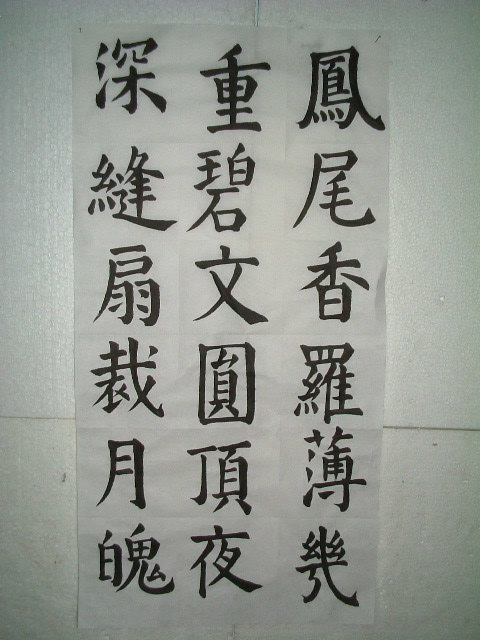 鳳尾香羅薄幾
重碧文圓頂夜
深縫扇裁月魄